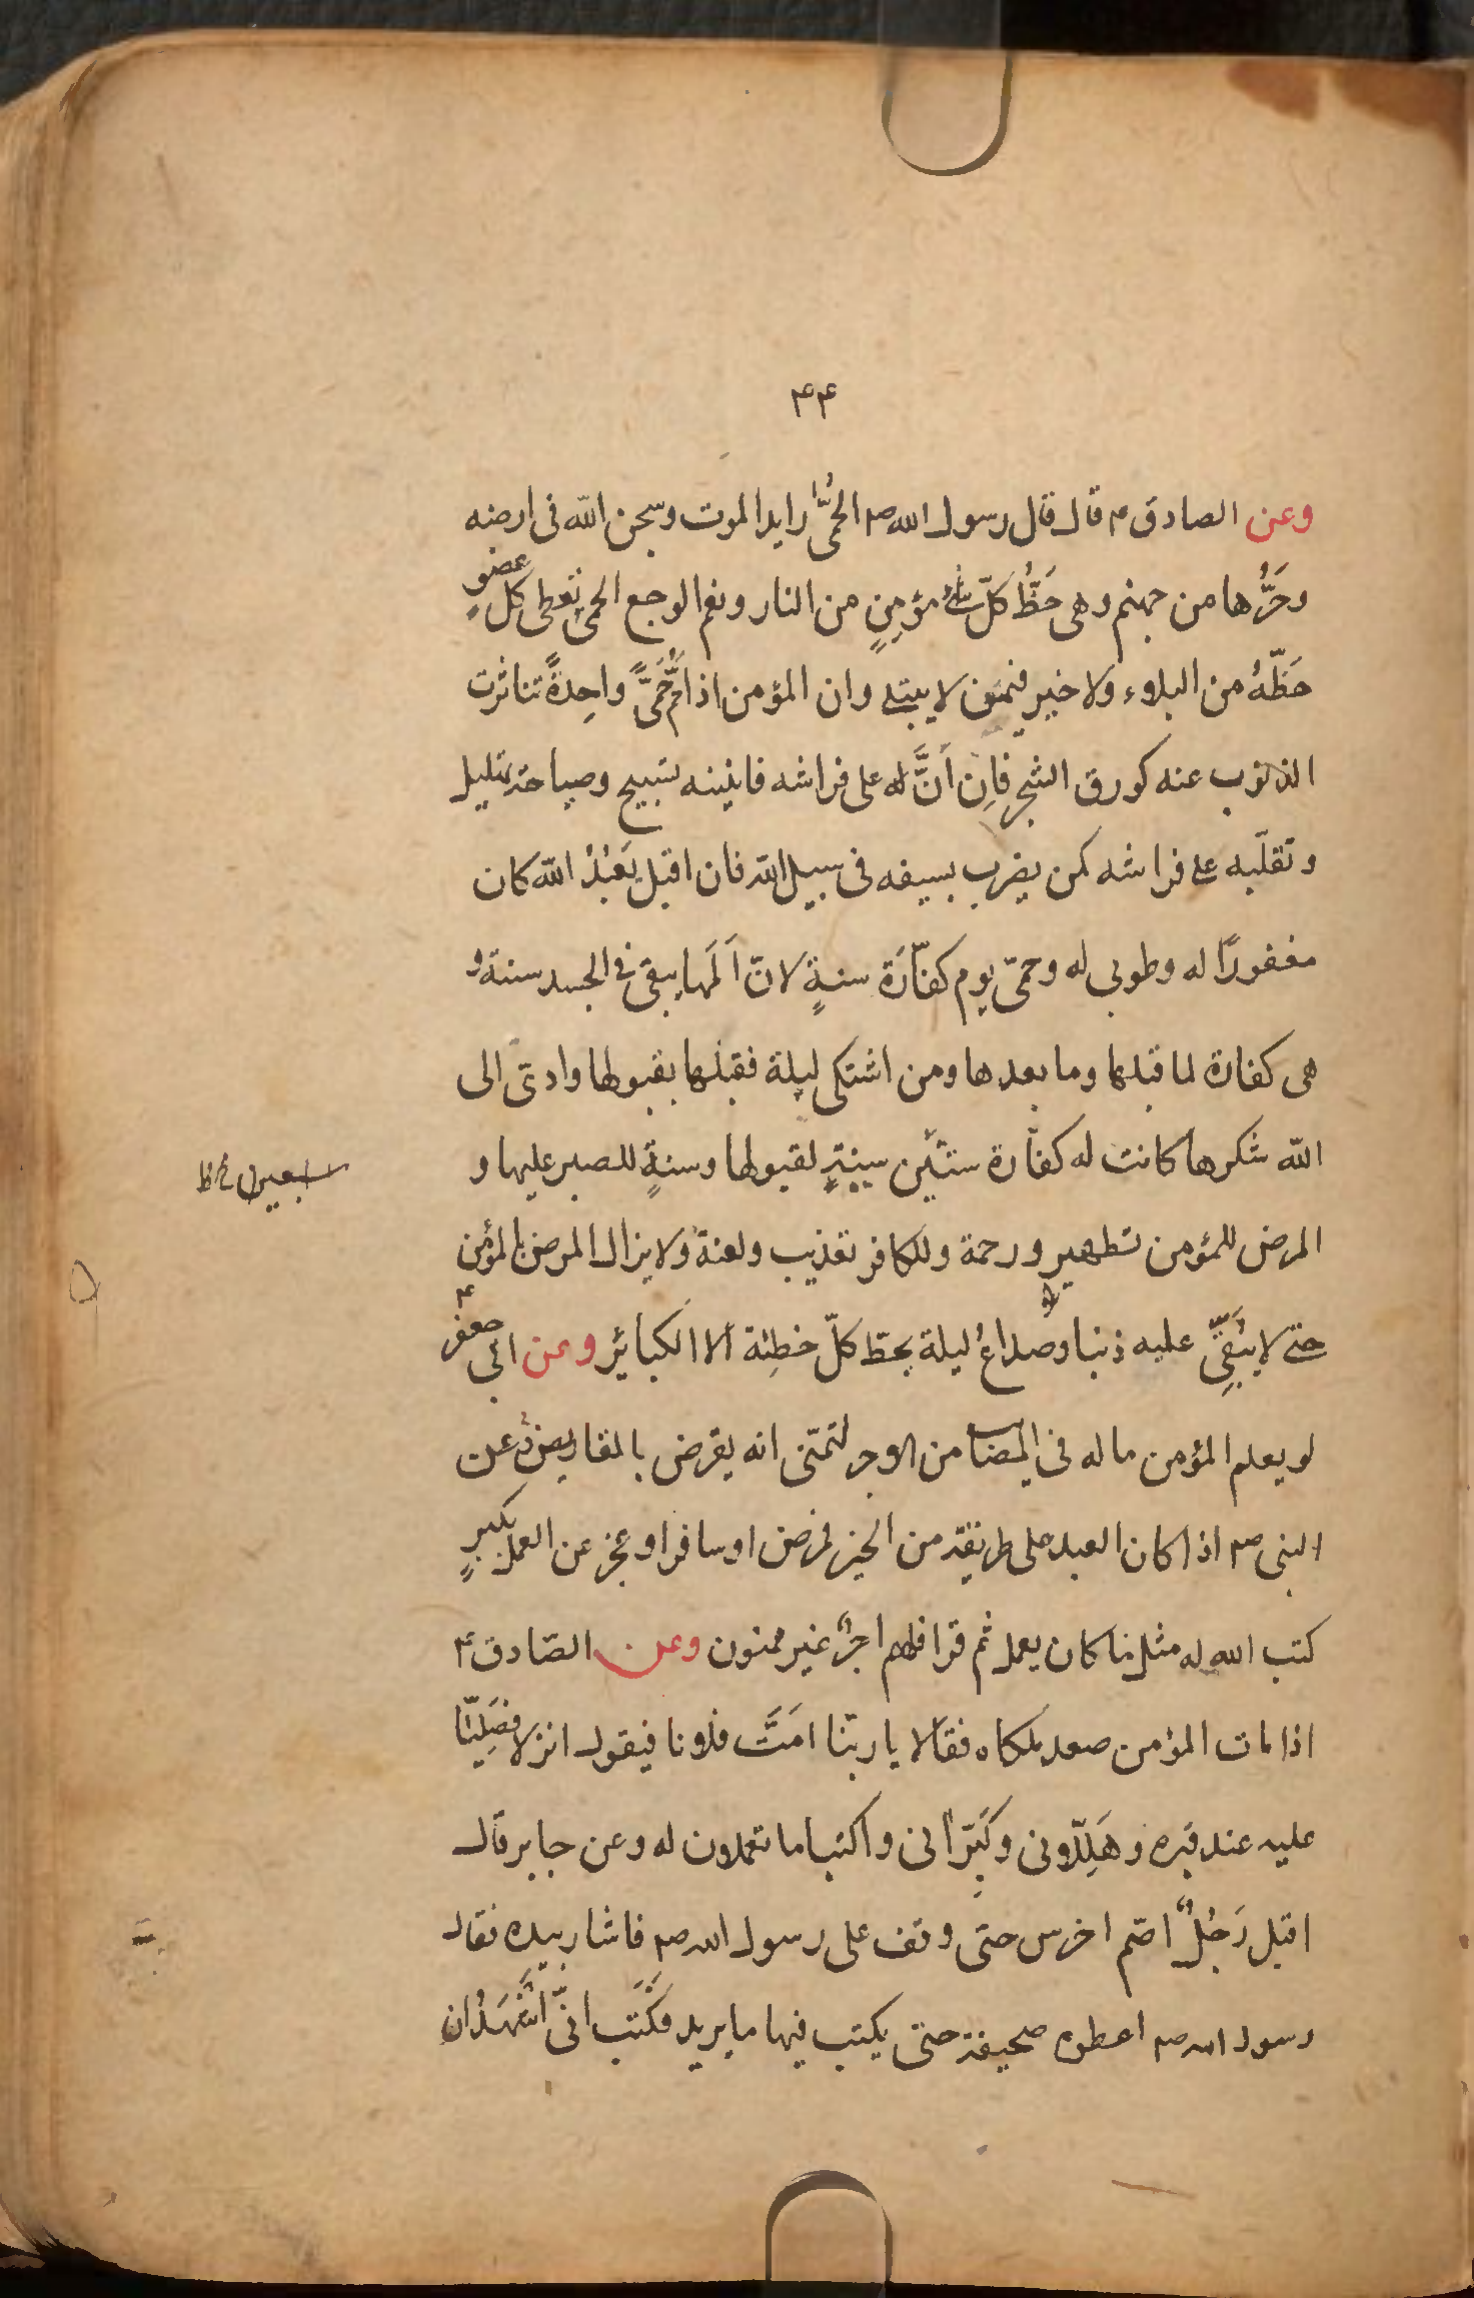 ۴۴
وعن الصادق ۴ قال قال رسول الله صم الحُمّى رايد الموت وسجن الله فى ارضه
وحَرُّها من جهنم وهى حَظُّ كلّ مؤمِنٍ من النار ونعم الوجع الحمى تعطى كل عضوٍ
حَظّهُ من البلاء ولا خير فيمن لا يبتلى وان المؤمن اذا حُمَّ حُمَّىً واحِدةً تناثرت
الذنوب عنه كورق الشجر فاِن اَنَّ له على فراشه فانينه تسبيح وصياحه تهليل
وتقلّبه على فراشه كمن يضرب بسيفه فى سبيل الله فان اقبل يَعْبُدُ الله كان
مغفورًا له وطوبى له وحمّى يوم كفّارَة سنةٍ لانّ اَلَمها يبقى فى الجسد سنة و
هى كفارة لما قبلها وما بعدها ومن اشتكى ليلة فقبلها بقبولها وادّى الى
الله شكرها كانت له كفّارة ستّين سنةٍ لقبولها وسنةٍ للصبر عليها و
سبعين خ ظ
المرض للمؤمن تطهير ورحمة وللكافر تعذيب ولعنة ولا يزال المرض بالمؤمن
حتى لا يُبَقِّىَ عليه ذنبا وصداعُ ليلة يحطّ كلّ خطِئة الا الكبائر وعن ابى جعفر ۴
لو يعلم المؤمن ما له فى المصائب من الاجر لتمنّى انه يقرض بالمقاريض وعن
النبى صم اذا كان العبد على طريقة من الخير فمرض او سافر او عجز عن العمل بكبرٍ
كتب الله له مثل ما كان يعمل ثم قرا فلهم اجرٌ غير ممنون وعن الصّادق ۴
اذا مات المؤمن صعد ملكاه فقالا يا ربّنا امَتَّ فلانا فيقول انزلا فصَلِّيا
عليه عند قبره وهَلِّلانى وكَبِّرانى واكتبا ما تعملان له وعن جابر قال
اقبل رَجُلٌ اصّم اخرس حتى وقف على رسول الله صم فاشار بيده فقال
رسول الله صم اعطوه صحيفة حتى يكتب فيها ما يريد فكَتَب انّى اَشْهَدُ ان